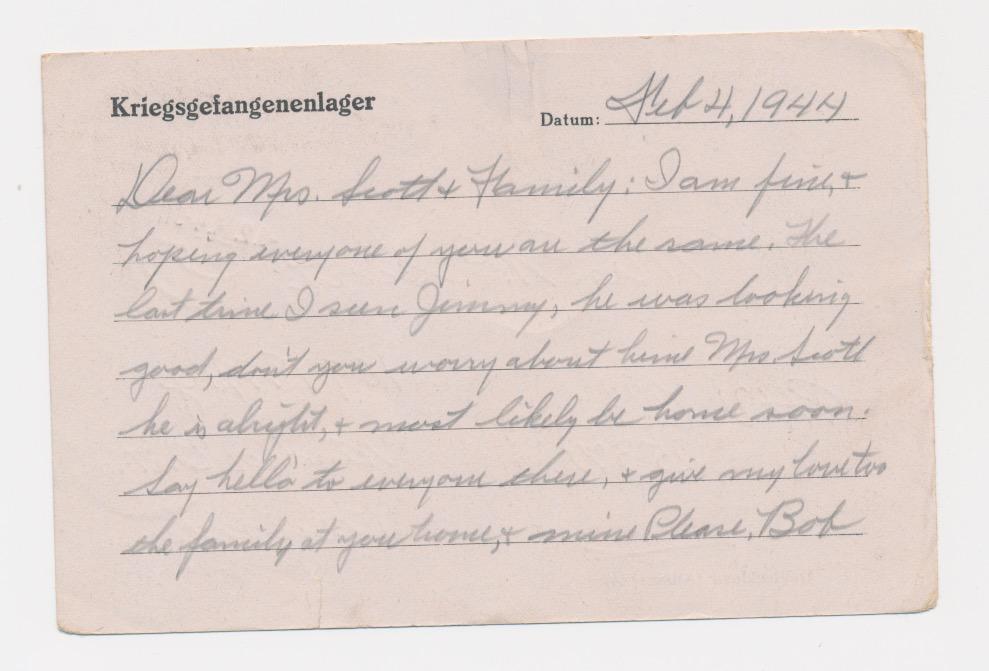 Kriegsgefangenenlager
Datum: Feb 4, 1944
Dear Mrs. Scott & Family: I am fine, &
hoping everyone of you are the same. The
last time I seen Jimmy, he was looking
good, don't you worry about hime Mrs. Scott
he is alright, & most likely be home soon.
Say hello to everyone there, & give my love too
the family at you home, & mine Please, Bob